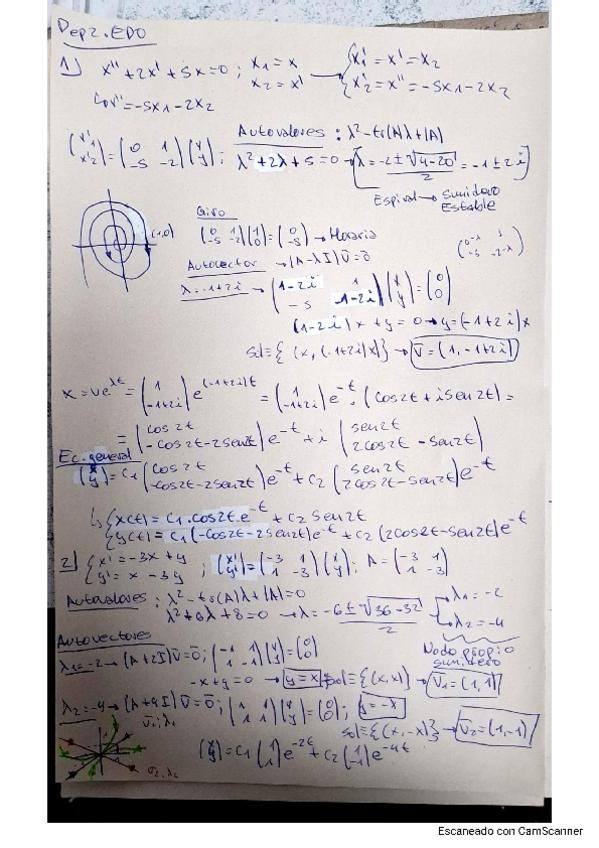 Dep2.EDO
1) x''+2x'+5x=0 ; x1=x x2=x' → {x1'=x'=x2 x2'=x''=-5x1-2x2
x''=-5x1-2x2
(x'1 x'2)=(0 1 -5 -2)(x y); Autovalores : λ²-tr(A)λ+|A|
λ²+2λ+5=0 → [λ=(-2±√4-20)/2=-1±2i]
Espiral → sumidero Estable
Giro
(1,0) (0 1 -5 -2)(1 0)=(0 -5) → Horaria
Autovector → (A-λI)v̄=0̄ (0-λ 1 -5 -2-λ)
λ=-1+2i → (1-2i 1 -5 -1-2i)(x y)=(0 0)
(1-2i)x+y=0 → y=(-1+2i)x
sol={(x,(-1+2i)x)} → v̄=(1,-1+2i)
x=ve^λt=(1 -1+2i)e^(-1+2i)t=(1 -1+2i)e^-t·(cos2t+isen2t)=
=(cos2t -cos2t-2sen2t)e^-t+i(sen2t 2cos2t-sen2t)
Ec.general
(x y)=c1(cos2t -cos2t-2sen2t)e^-t+c2(sen2t 2cos2t-sen2t)e^-t
↳{x(t)=c1.cos2t.e^-t+c2sen2t
y(t)=c1(-cos2t-2sen2t)e^-t+c2(2cos2t-sen2t)e^-t
2) {x'=-3x+y y'=x-3y ; (x' y')=(-3 1 1 -3)(x y); A=(-3 1 1 -3)
Autovalores : λ²-tr(A)λ+|A|=0
λ²+6λ+8=0 → λ=(-6±√36-32)/2 λ1=-2 λ2=-4
Autovectores
Nodo propio sumidero
λ1=-2 → (A+2I)v̄=0̄; (-1 1 1 -1)(x y)=(0 0)
-x+y=0 → y=x sol={(x,x)} → v̄1=(1,1)
λ2=-4 → (A+4I)v̄=0̄; (1 1 1 1)(x y)=(0 0); y=-x
sol={(x,-x)} → v̄2=(1,-1)
v̄1,λ1
v̄2,λ2
(x y)=c1(1 1)e^-2t+c2(1 -1)e^-4t
Escaneado con CamScanner